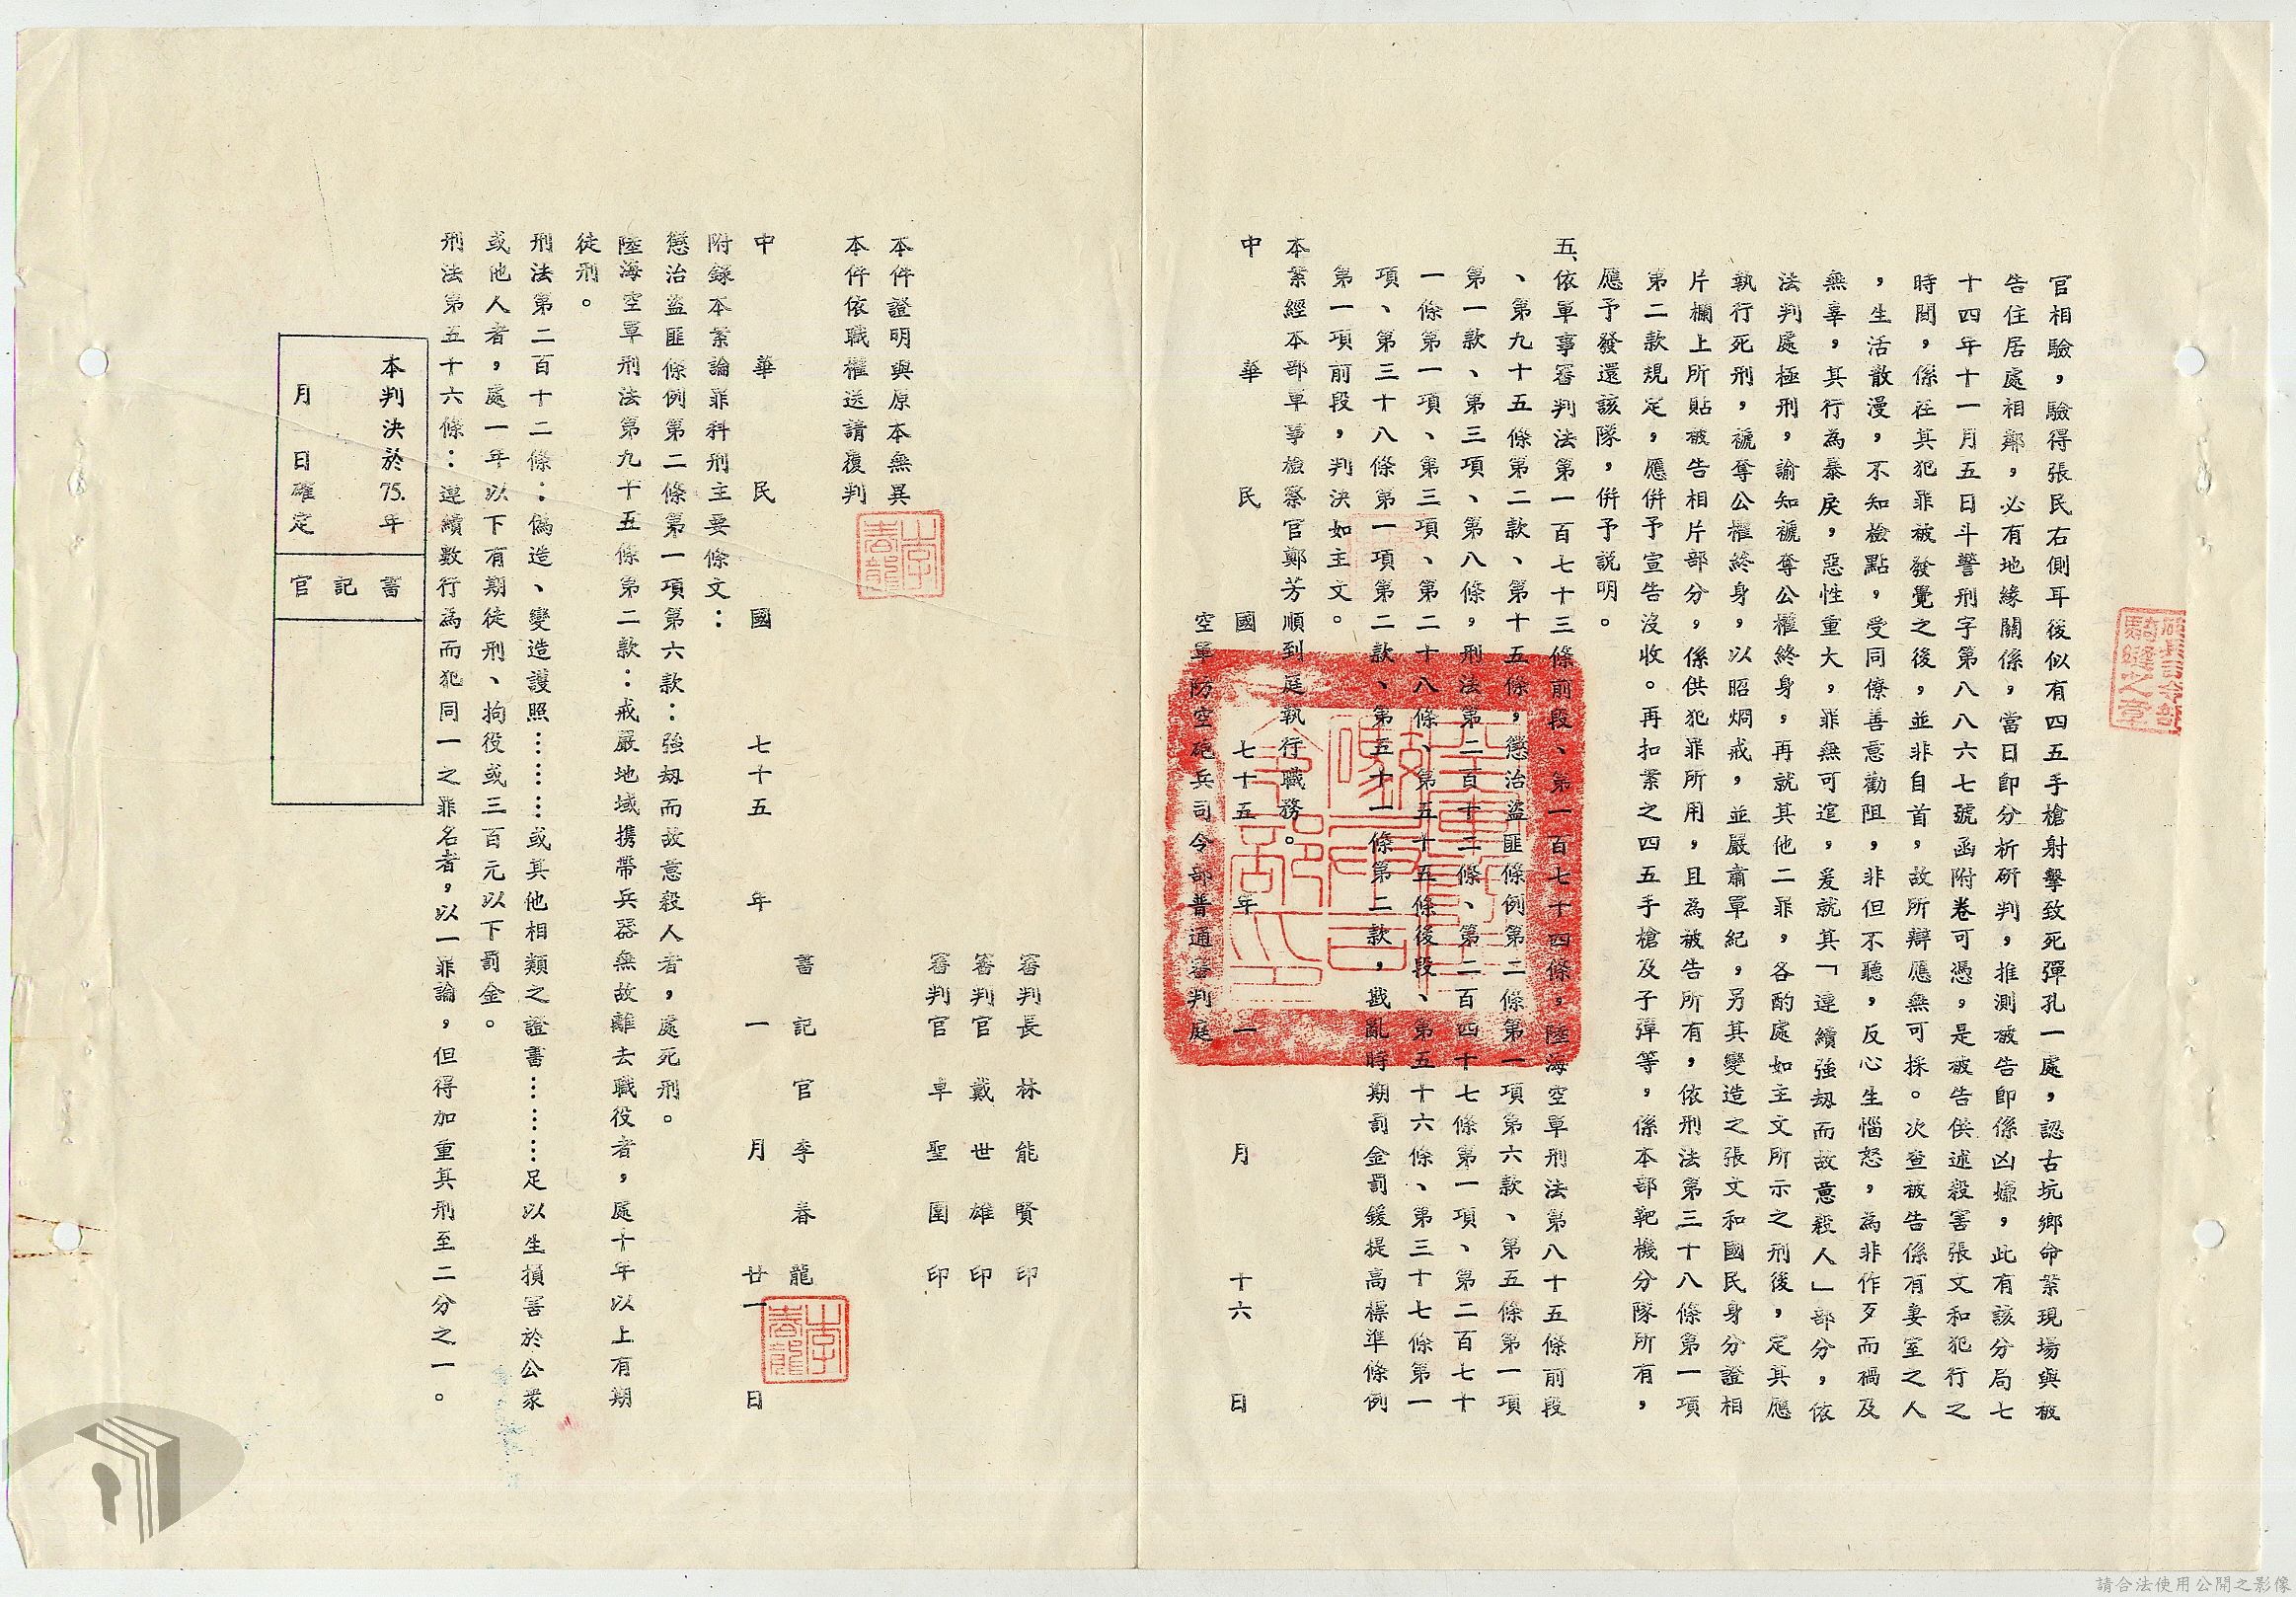 官相驗，驗得張民右側耳後似有四五手槍射擊致死彈孔一處，認古坑鄉命案現場與被
告住居處相鄰，必有地緣關係，當日即分析研判，推測被告即係凶嫌，此有該分局七
十四年十一月五日斗警刑字第八八六七號函附卷可憑，是被告供述殺害張文和犯行之
時間，係在其犯罪被發覺之後，並非自首，故所辯應無可採。次查被告係有妻室之人
，生活散漫，不知檢點，受同僚善意勸阻，非但不聽，反心生惱怒，為非作歹而禍及
無辜，其行為暴戾，惡性重大，罪無可逭，爰就其「連續強刼而故意殺人」部分，依
法判處極刑，諭知褫奪公權終身，再就其他二罪，各酌處如主文所示之刑後，定其應
執行死刑，褫奪公權終身，以昭烱戒，並嚴肅軍紀，另其變造之張文和國民身分證相
片欄上所貼被告相片部分，係供犯罪所用，且為被告所有，依刑法第三十八條第一項
第二款規定，應併予宣告沒收。再扣案之四五手槍及子彈等，係本部靶機分隊所有，
應予發還該隊，併予説明。
五、依軍事審判法第一百七十三條前段、第一百七十四條，陸海空軍刑法第八十五條前段
、第九十五條第二款、第十五條，懲治盜匪條例第二條第一項第六款、第五條第一項
第一款、第三項、第八條，刑法第二百十二條、第二百四十七條第一項、第二百七十
一條第一項、第三項、第二十八條、第五十五條後段、第五十六條、第三十七條第一
項、第三十八條第一項第二款、第五十一條第二款，戡亂時期罰金罰鍰提高標準條例
第一項前段，判決如主文。
本案經本部軍事檢察官鄭芳順到庭執行職務。
中華民國七十五年一月十六日
空軍防空砲兵司令部普通審判庭
審判長 林能賢 印
審判官 戴世雄 印
審判官 卓聖圍 印
本件證明與原本無異
本件依職權送請覆判
李春龍
書記官 李春龍
李春龍
中華民國七十五年一月廿一日
附錄本案論罪科刑主要條文：
懲治盜匪條例第二條第一項第六款：強刼而故意殺人者，處死刑。
陸海空軍刑法第九十五條第二款：戒嚴地域携帶兵器無故離去職役者，處十年以上有期
徒刑。
刑法第二百十二條：偽造、變造護照………或其他相類之證書………足以生損害於公眾
或他人者，處一年以下有期徒刑、拘役或三百元以下罰金。
刑法第五十六條：連續數行為而犯同一之罪名者，以一罪論，但得加重其刑至二分之一。
本判決於75.年
月 日確定
書記官
請合法使用公開之影像